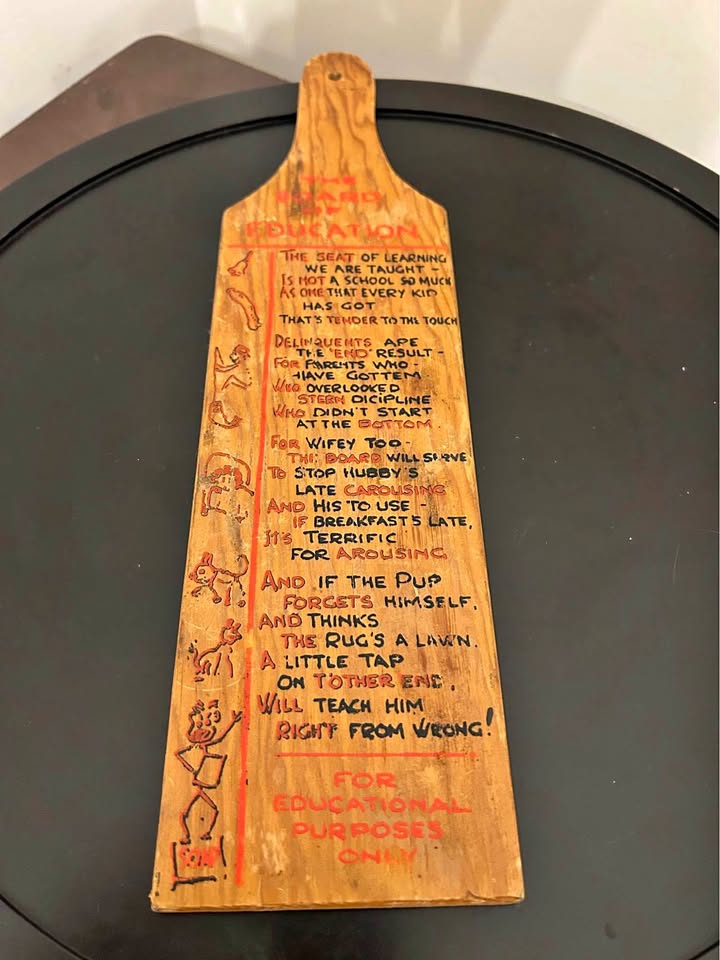 THE
BOARD
OF
EDUCATION
THE SEAT OF LEARNING
WE ARE TAUGHT -
IS NOT A SCHOOL SO MUCH
AS ONE THAT EVERY KID
HAS GOT
THAT'S TENDER TO THE TOUCH
DELINQUENTS ARE
THE "END" RESULT -
FOR PARENTS WHO -
HAVE GOTTEM
WHO OVERLOOKED
STERN DICIPLINE
WHO DIDN'T START
AT THE BOTTOM
FOR WIFEY TOO -
THE BOARD WILL SERVE
TO STOP HUBBY'S
LATE CAROUSING
AND HIS TO USE -
IF BREAKFAST'S LATE,
IT'S TERRIFIC
FOR AROUSING
AND IF THE PUP
FORGETS HIMSELF,
AND THINKS
THE RUG'S A LAWN.
A LITTLE TAP
ON T'OTHER END,
WILL TEACH HIM
RIGHT FROM WRONG!
FOR
EDUCATIONAL
PURPOSES
ONLY